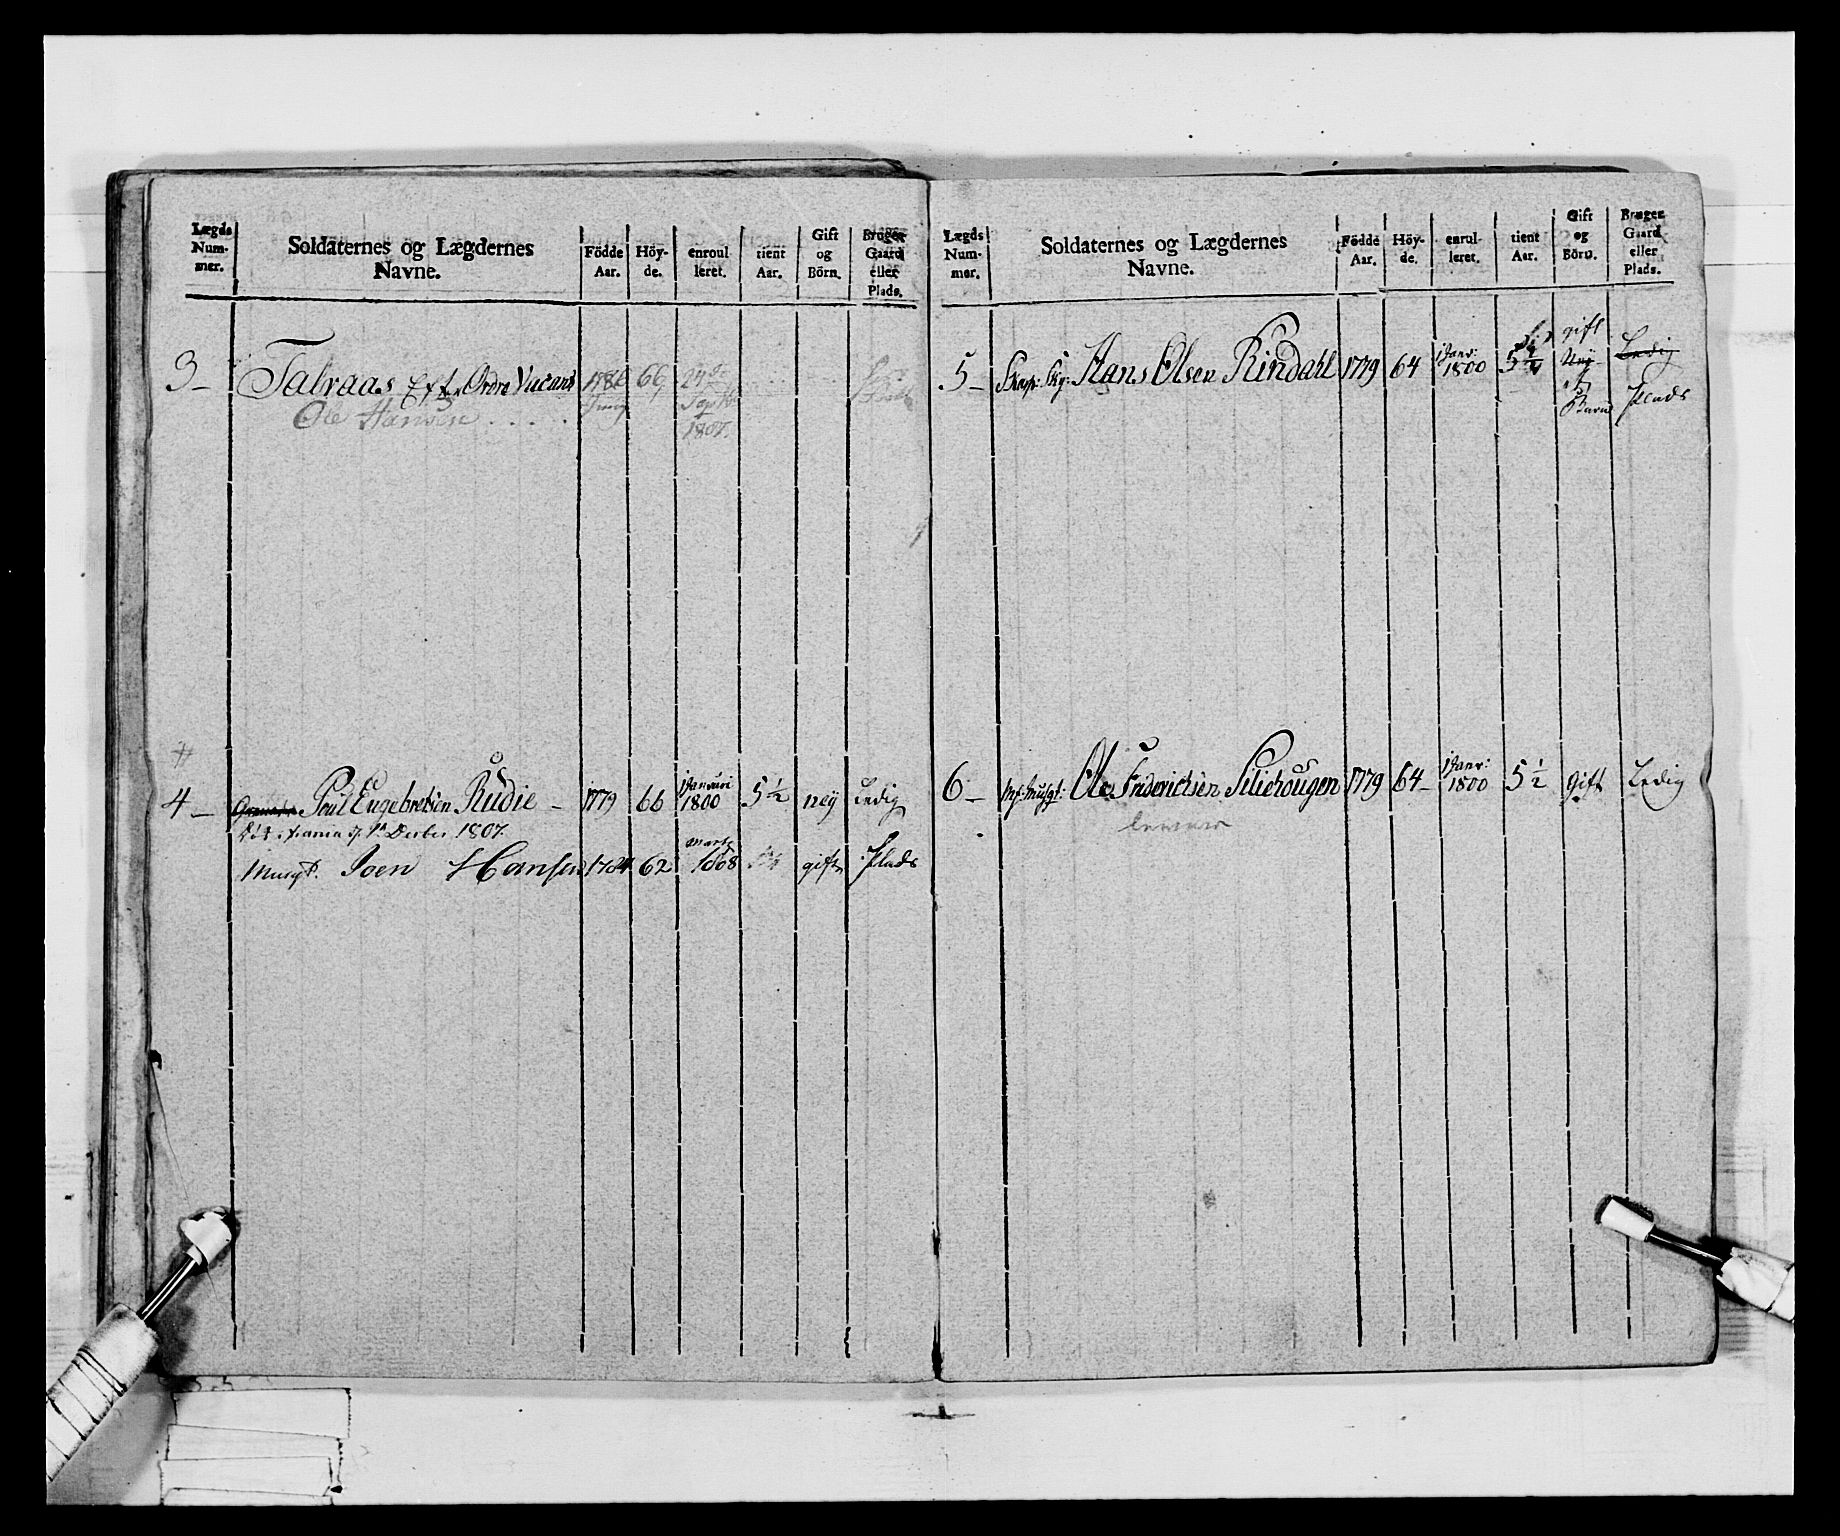 Lægds Num- mer.
Soldaternes og Lægdernes Navne.
Födde Aar.
Höy- de.
enroul leret.
tient Aar.
Gift og Börn.
Bruger Gaard eller Plads.
3 - Talraas Eft. Ordre Vacant 1786 66
Ole Hansen . . . .
1807.
4 - Poul Engebretsen Rudie - 1779 66 1 Januari 1800 5 1/2 ney Ledig
1807.
Musqt. Joen Hansen 1784 62 Marty 1808 gift Plads
Lægds Num- mer.
Soldaternes og Lægdernes Navne.
Födde Aar.
Höy- de.
enrul- leret.
tient Aar.
Gift og Börn.
Bruger Gaard eller Plads.
5 - Hans Olsen Rindahl 1779 64 1 Janr: 1800 5 1/2 gift Ney Ledig
Barn Plads
6 - Musqt: Ole Friderichsen Siliehougen 1779 64 - 1 Janr: 1800 5 1/2 Gift Ledig